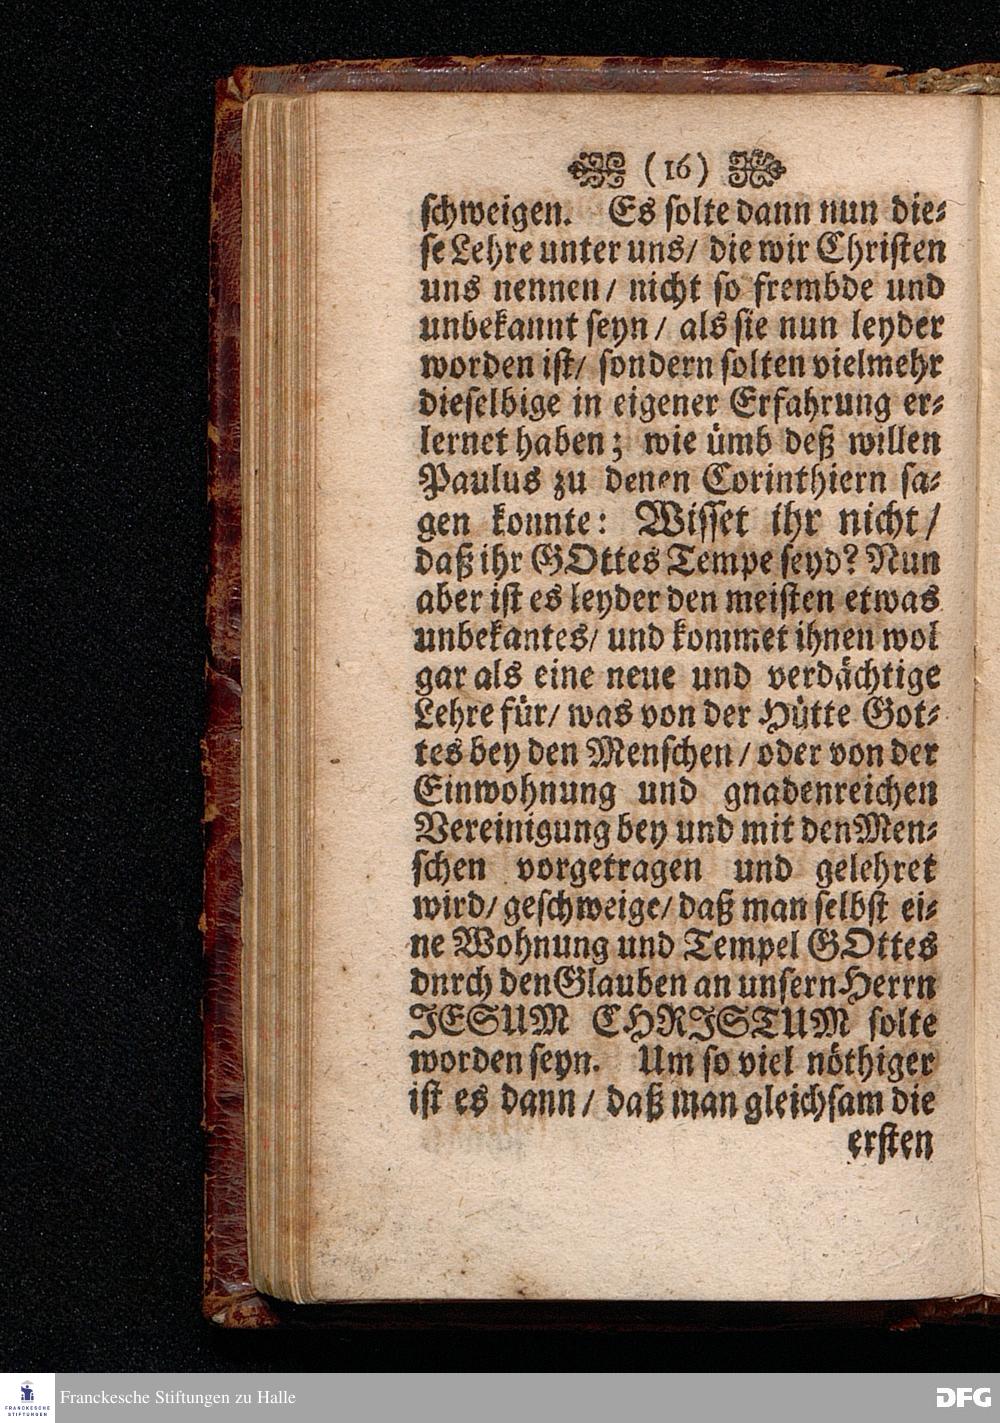 (16)
schweigen. Es solte dann nun die-
se Lehre unter uns/ die wir Christen
uns nennen/ nicht so frembde und
unbekannt seyn/ als sie nun leyder
worden ist/ sondern solten vielmehr
dieselbige in eigener Erfahrung er-
lernet haben; wie ümb deß willen
Paulus zu denen Corinthiern sa-
gen konnte: Wisset ihr nicht/
daß ihr GOttes Tempe seyd? Nun
aber ist es leyder den meisten etwas
unbekantes/ und kommet ihnen wol
gar als eine neue und verdächtige
Lehre für/ was von der Hütte Got-
tes bey den Menschen/ oder von der
Einwohnung und gnadenreichen
Vereinigung bey und mit den Men-
schen vorgetragen und gelehret
wird/ geschweige/ daß man selbst ei-
ne Wohnung und Tempel GOttes
dnrch den Glauben an unsern Herrn
JESUM CHRISTUM solte
worden seyn. Um so viel nöthiger
ist es dann/ daß man gleichsam die
ersten
FRANCKESCHE
STIFTUNGEN
Franckesche Stiftungen zu Halle
DFG